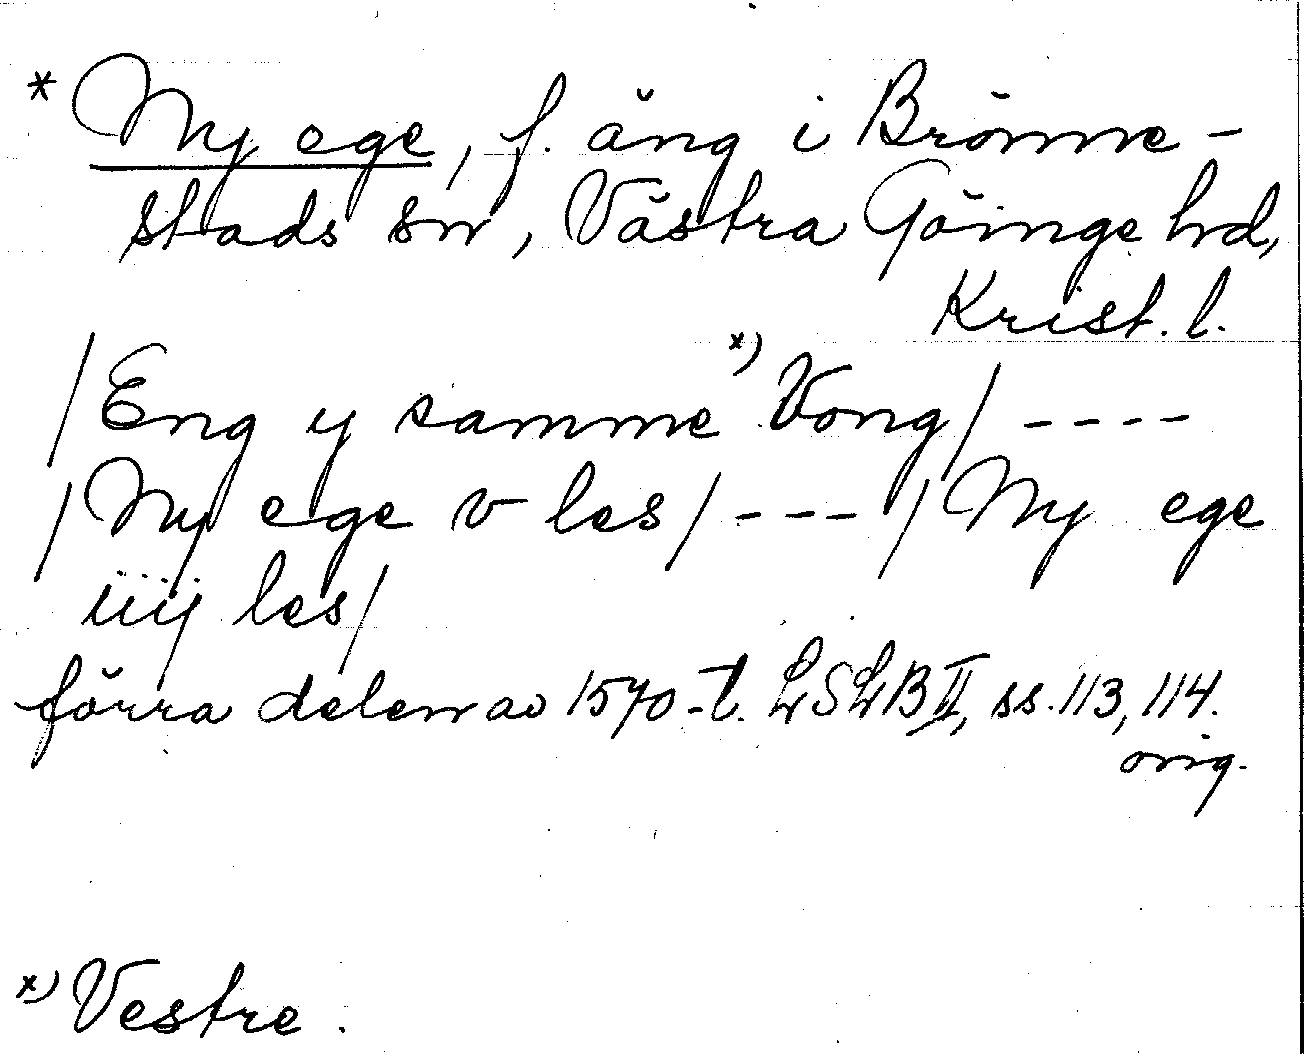 * Ny ege, f. äng i Brönne-
stads sn, Västra Göinge hd,
Krist. l.
/Eng y samme x) Vong/ ----
/Ny ege v les/ --- /Ny ege
iiij les/
förra delen av 1570-t. LSLB II, ss. 113, 114.
orig.
x) Vestre.